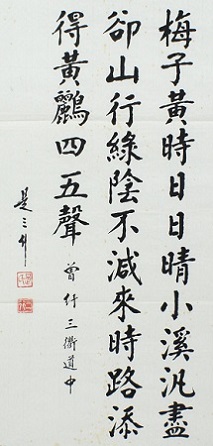 梅子黃時日日晴小溪汎盡
卻山行綠陰不減來時路添
得黃鸝四五聲
曾三衢道中